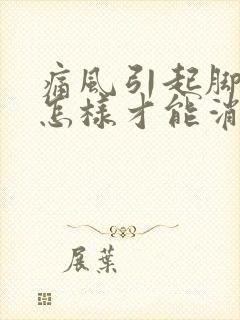 痛風引起脚
怎樣才能消
展葉